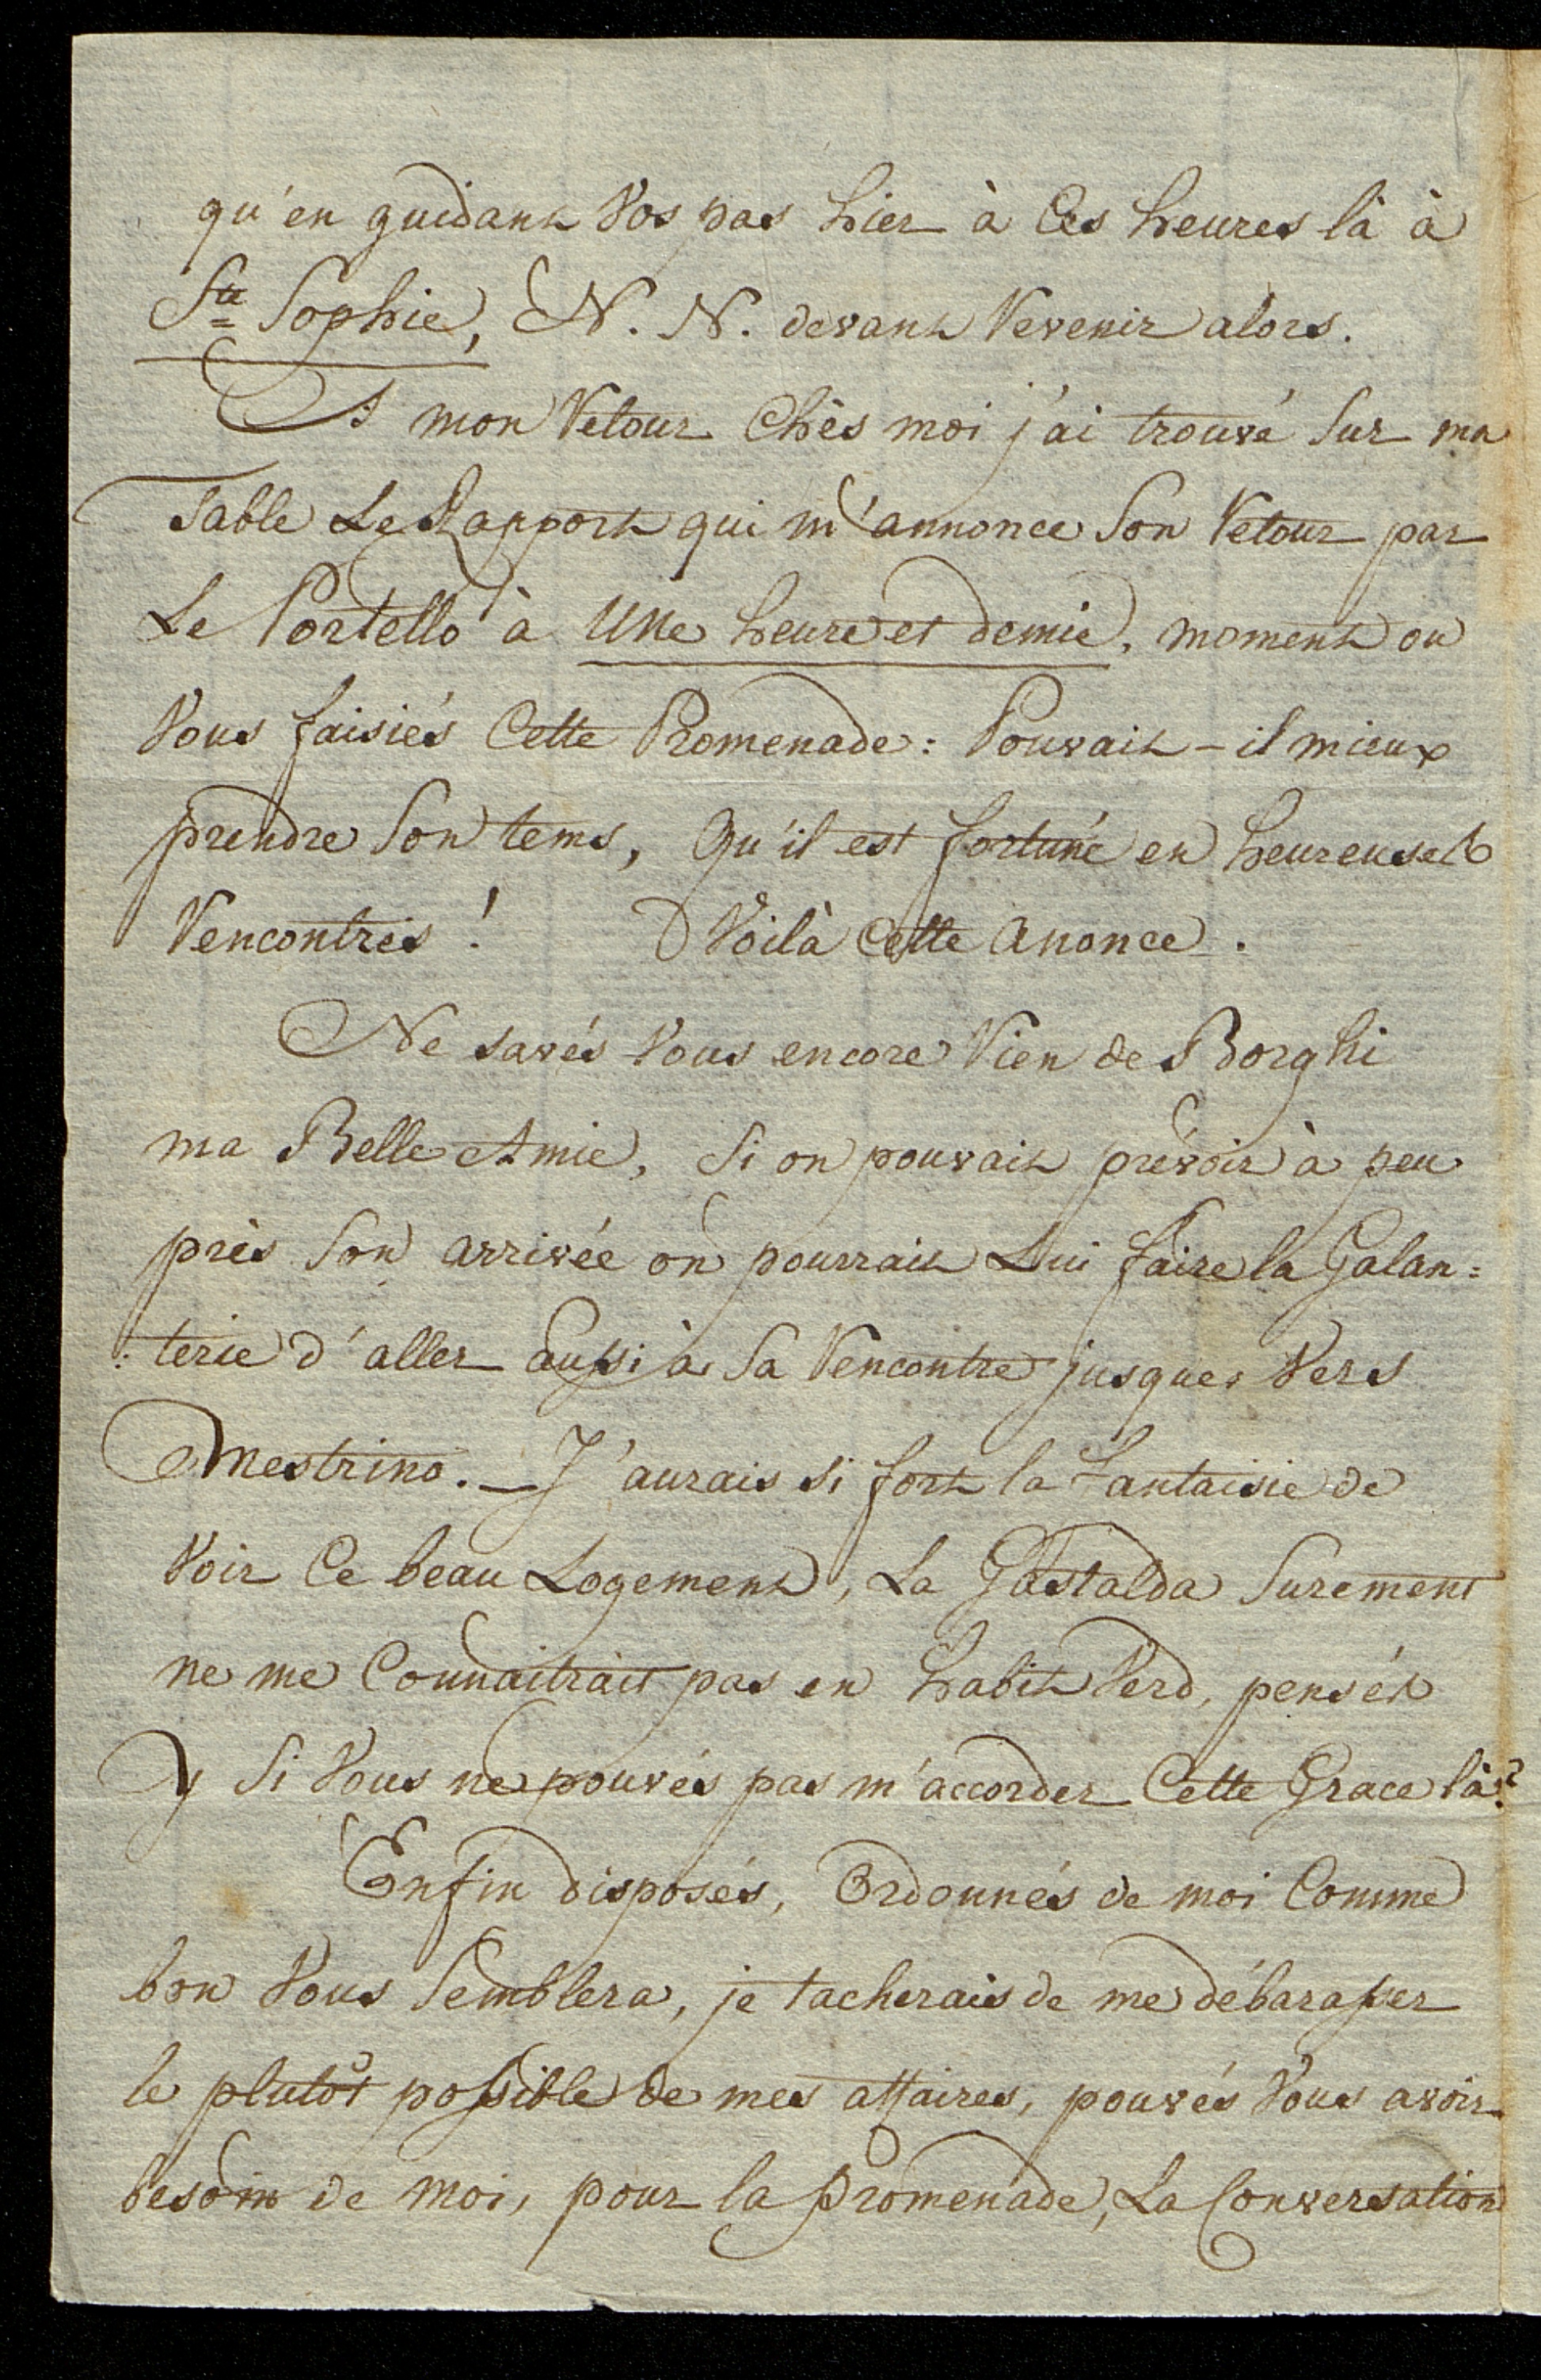 qu'en guidant Vos pas hier à Ces heures là à
Ste Sophie, N. N. devant Revenir alors.
A mon Retour Chés moi j'ai trouvé Sur ma
Table Le Rapport qui m'annonce Son Retour par
Le Portello à Une heure et demie, moment ou
Vous faisiés Cette Promenade: Pouvait-il mieux
prendre Son tems, Qu'il est fortuné en heureuses
Rencontres! Voilà Cette anonce.
Ne savés Vous encore Rien de Borghi
ma Belle Amie, Si on pouvait prévoir à peu
près Son arrivée on pourrait Lui faire la Galan=
:terie d'aller aussi à Sa Rencontre jusques Vers
Mestrino. _ J'aurais si fort la fantaisie de
Voir Ce beau Logement, La Gastalda Surement
ne me Connaitrait pas en habit Verd, pensés
y Si Vous ne pouvés pas m'accorder Cette Grace là?
Enfin disposés, Ordonnés de moi Comme
bon Vous Semblera, je tacherais de me débarasser
le plutôt possible de mes affaires, pouvés Vous avoir
besoin de moi, pour la promenade, La Conversation